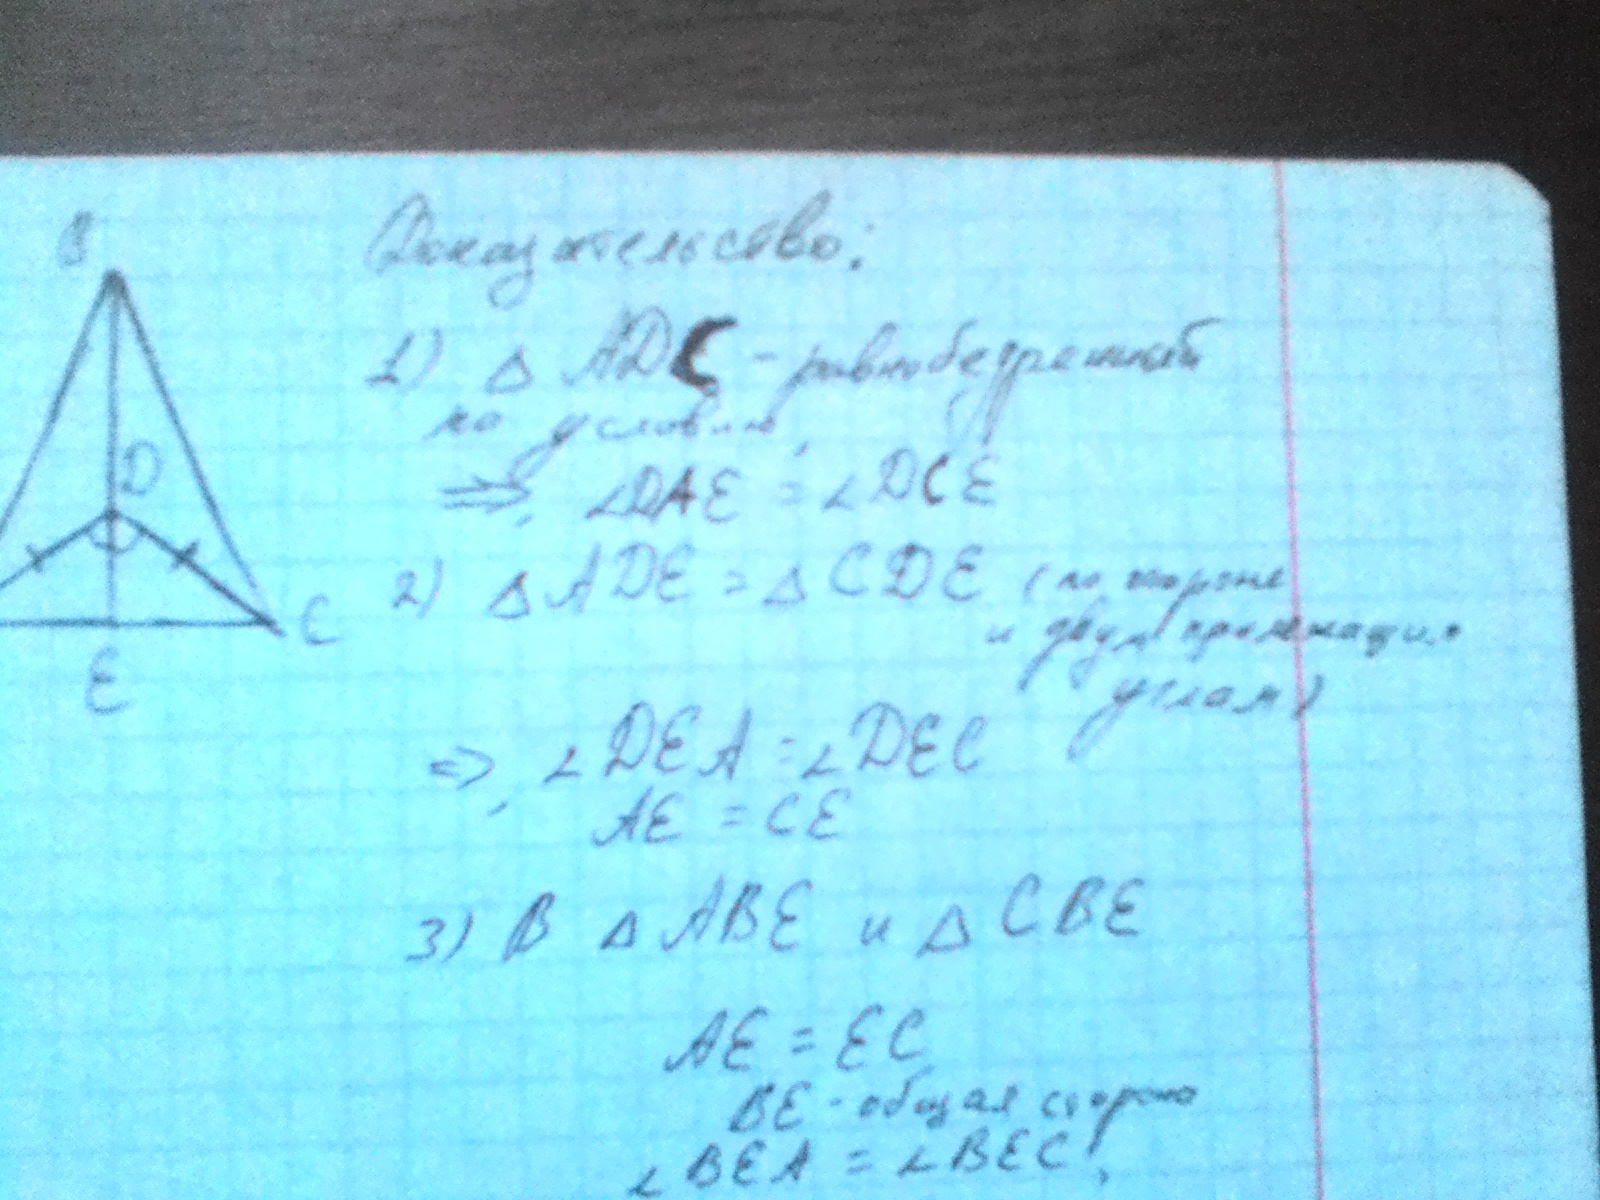 Доказательство:
B
1) △ ADC - равнобедренный
по условию,
D
⇒, ∠DAE = ∠DCE
2) △ADE = △CDE (по стороне
и двум прилежащим
углам)
C
E
⇒, ∠DEA = ∠DEC
AE = CE
3) В △ABE и △CBE
AE = EC
BE - общая сторона
∠BEA = ∠BEC,